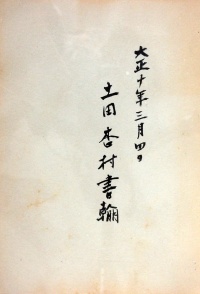 大正十年三月四日
土田杏村書翰